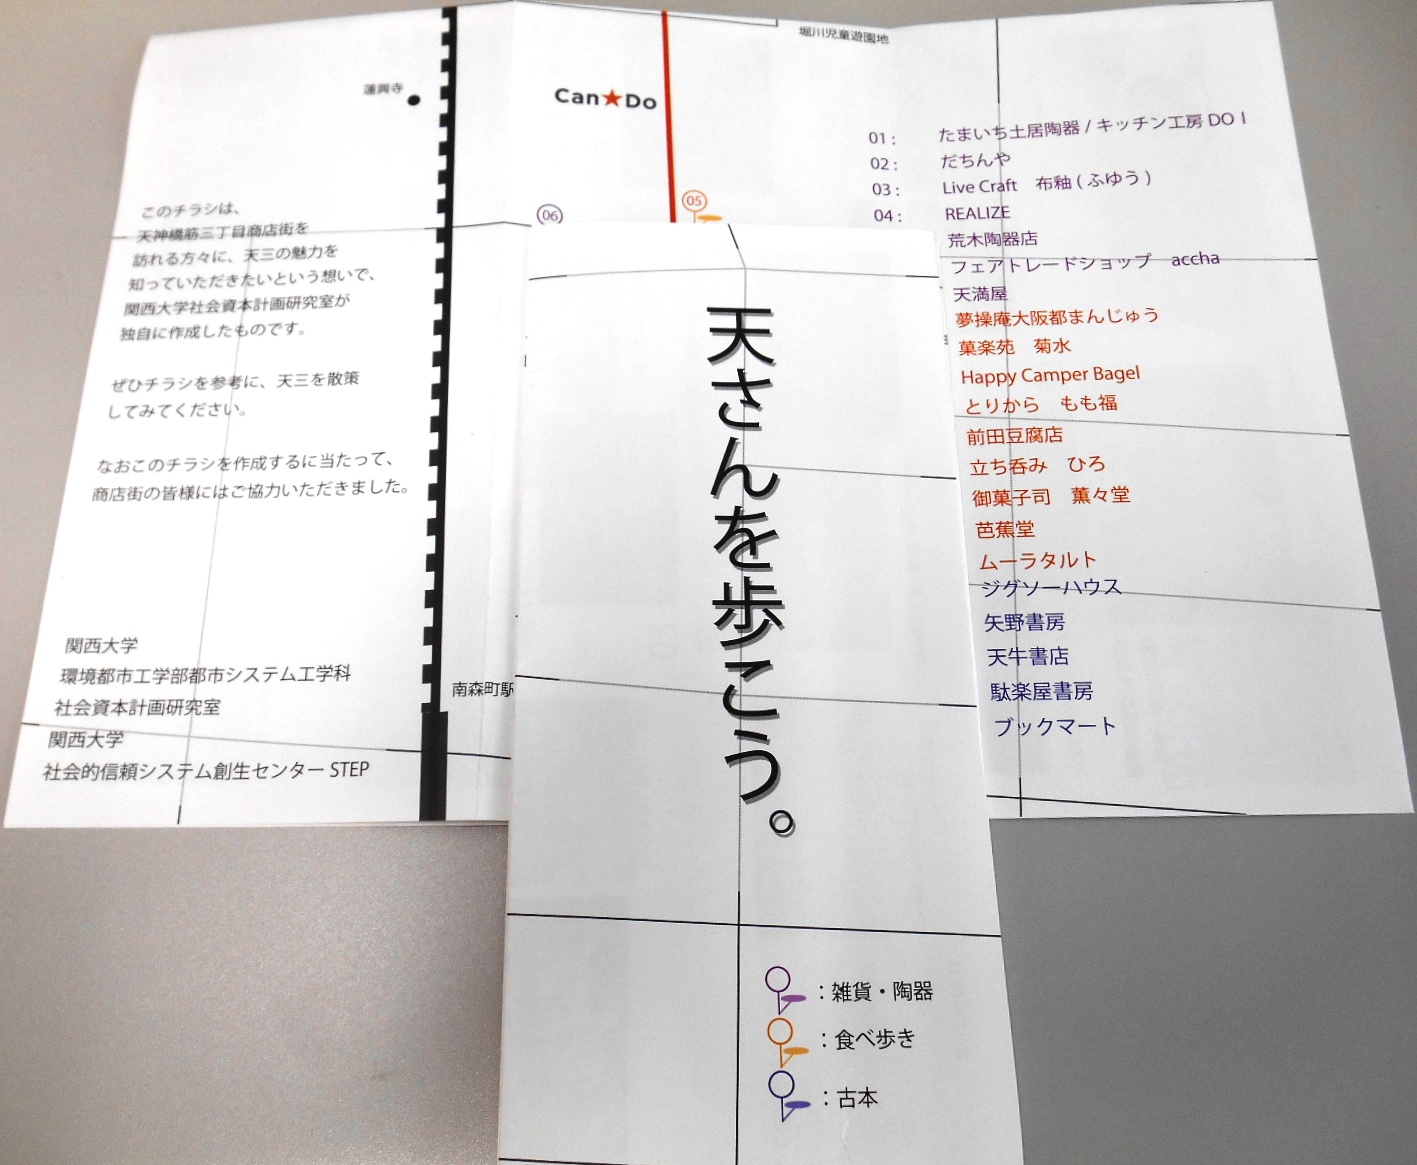 堀川児童遊園地
蓮興寺
Can★Do
05
06
このチラシは、
天神橋筋三丁目商店街を
訪れる方々に、天三の魅力を
知っていただきたいという想いで、
関西大学社会資本計画研究室が
独自に作成したものです。
ぜひチラシを参考に、天三を散策
してみてください。
なおこのチラシを作成するに当たって、
商店街の皆様にはご協力いただきました。
関西大学
環境都市工学部都市システム工学科
社会資本計画研究室
関西大学
社会的信頼システム創生センター STEP
南森町駅
天さんを歩こう。
：雑貨・陶器
：食べ歩き
：古本
01 : たまいち土居陶器 / キッチン工房 DO I
02 : だちんや
03 : Live Craft 布釉 ( ふゆう )
04 : REALIZE
荒木陶器店
フェアトレードショップ accha
天満屋
夢操庵大阪都まんじゅう
菓楽苑 菊水
Happy Camper Bagel
とりから もも福
前田豆腐店
立ち呑み ひろ
御菓子司 薫々堂
芭蕉堂
ムーラタルト
ジグソーハウス
矢野書房
天牛書店
駄楽屋書房
ブックマート